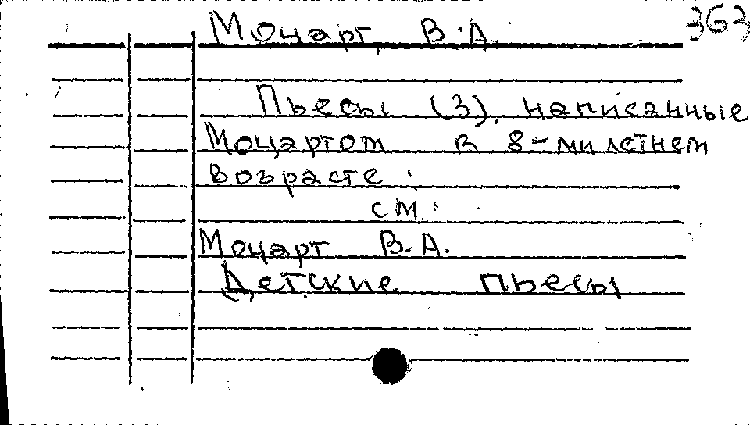 363
Моцарт, В.А.
Пьесы (3), написанные
Моцартом в 8-милетнем
возрасте:
см:
Моцарт В.А.
Детские пьесы